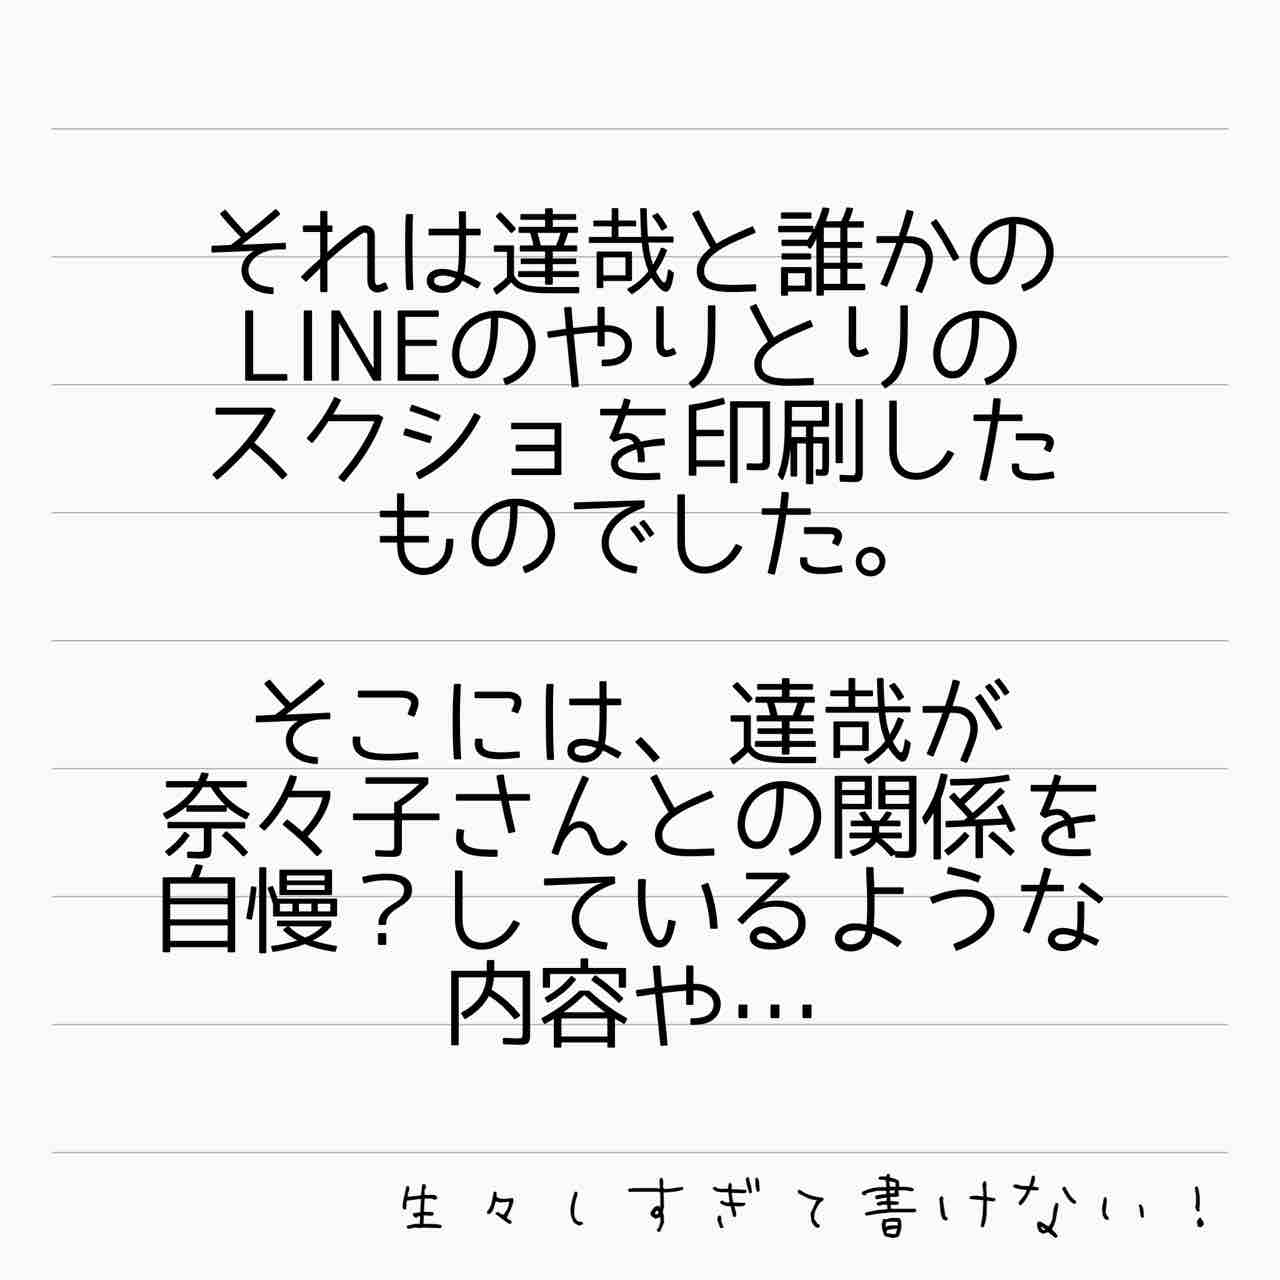 それは達哉と誰かの
LINEのやりとりの
スクショを印刷した
ものでした。
そこには、達哉が
奈々子さんとの関係を
自慢？しているような
内容や…
生々しすぎて書けない！